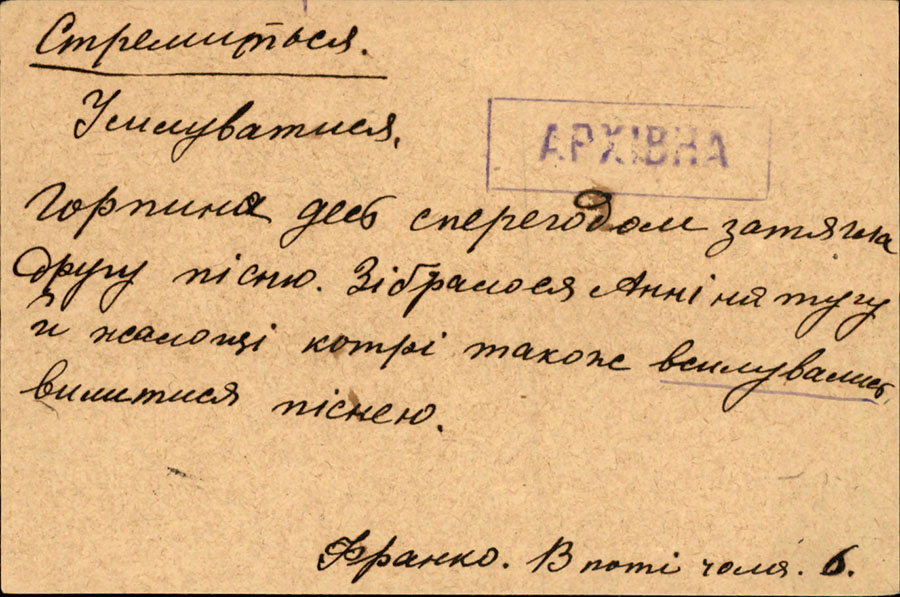 Стремиться.
Усилуватися.
АРХІВНА
Горпина десь сперегодом затягла
другу пісню. Зібралося Анні на тугу
й жалощі котрі також всилувались
вилитися піснею.
Франко. В поті чола. 6.